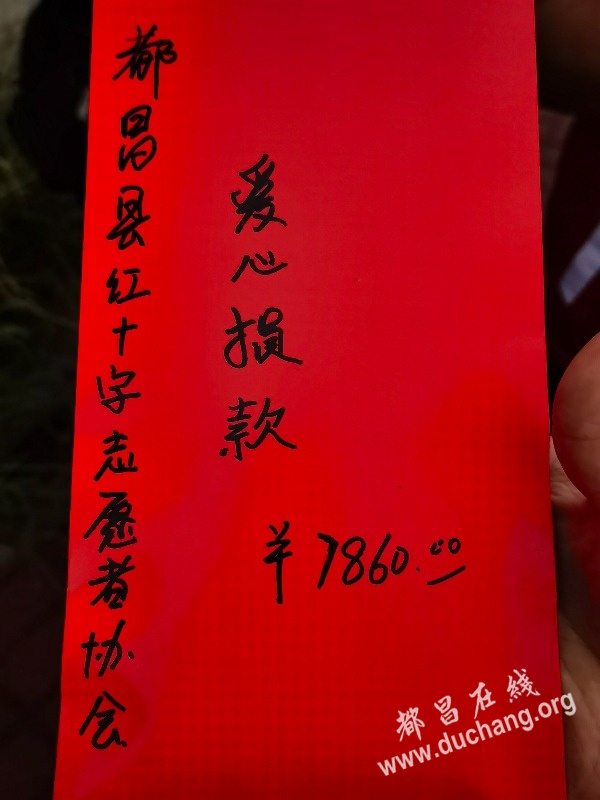 都昌县红十字志愿者协会
爱心捐款
¥7860.00
都昌在線
www.duchang.org